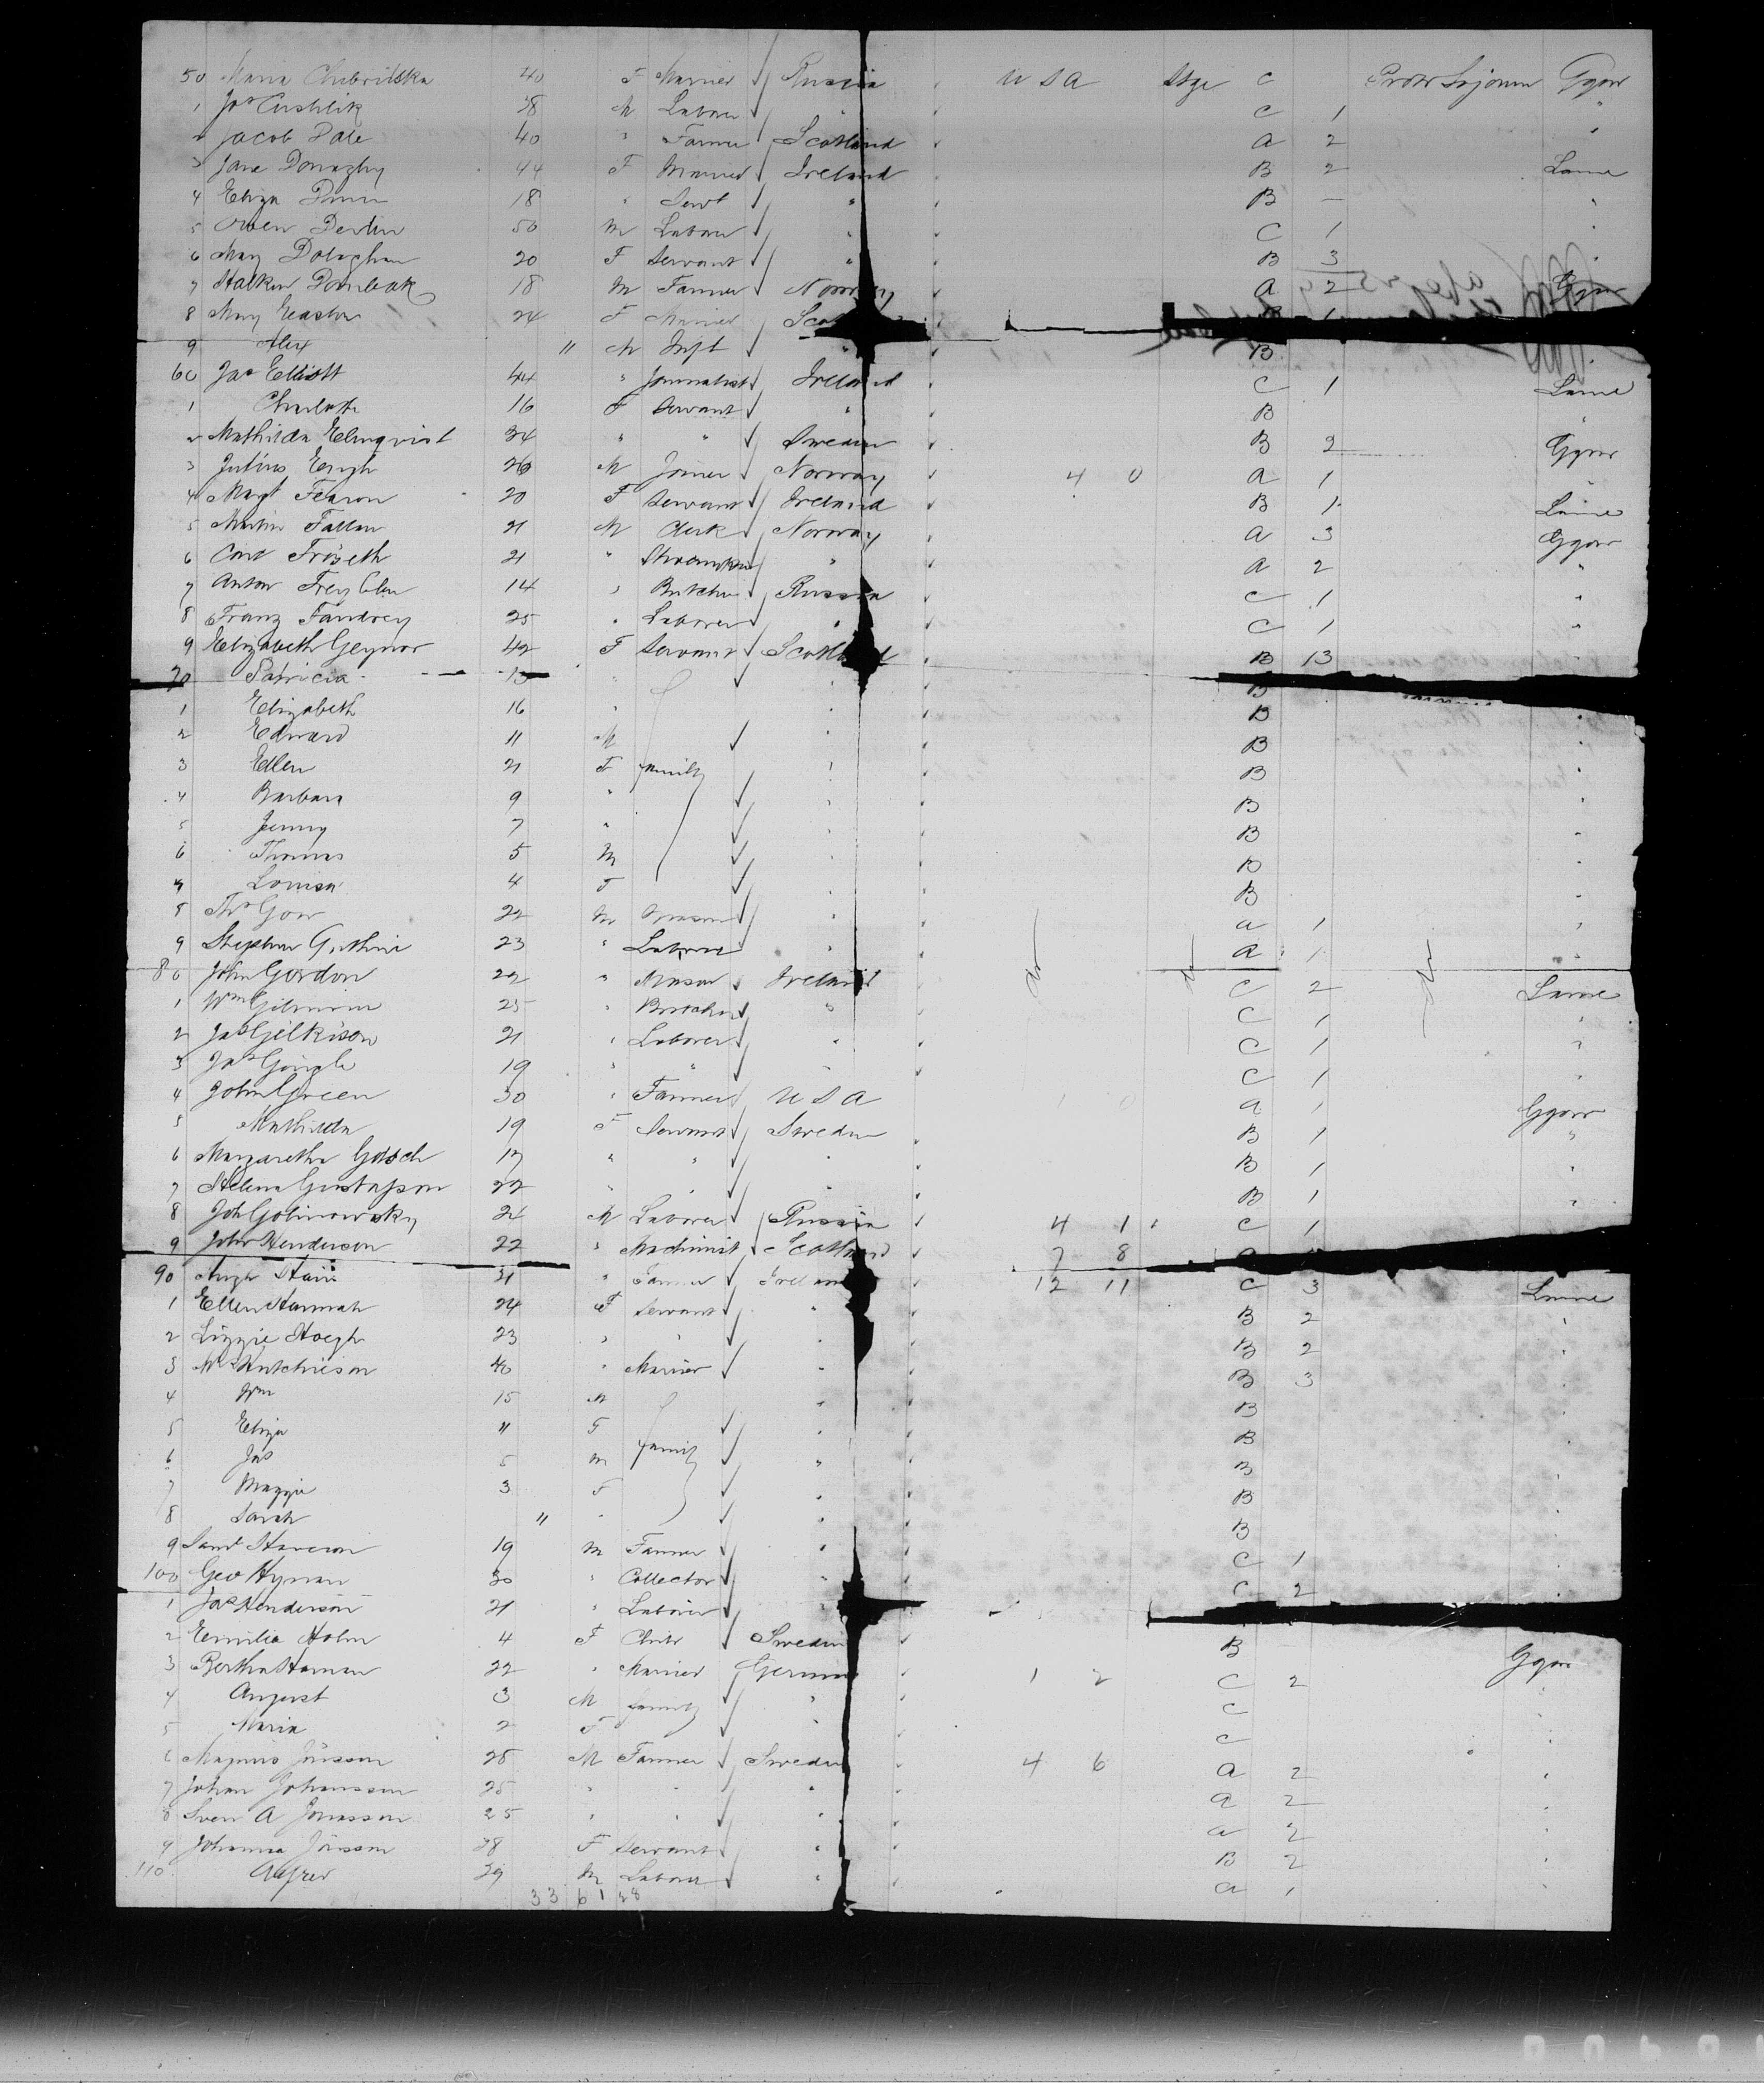 50 Maria Chibrilska 40 F Married Russia " U S A Stge C Protr Sojourn Ggow
1 Jas Cushlik 38 M Laborer " C 1 "
2 Jacob Dale 40 " Farmer Scotland A 2 "
3 Jane Donaghy 44 F Married Ireland B 2 Larne
4 Eliza Dunn 18 " Servt " B — "
5 Owen Devlin 50 M Laborer " C 1 "
6 Mary Dolaghan 20 F Servant " B 3 "
7 18 M Farmer Norway A 2 Ggow
8 Mary Easton 24 F Married Scot
9 Alex 11 M Inft " B "
60 Jas Elliott 44 " Journalist Ireland C 1 Larne
1 Charlotte 16 F Servant " B "
2 Mathilda Elmqvist 34 " " Sweden B 2 Ggow
3 Julius Engh 26 M Joiner Norway 4 0 A 1 "
4 Magt Fearon 20 F Servant Ireland B 1 Larne
5 Martin Fallan 21 M Clerk Norway A 3 Ggow
6 Fröseth 21 " " A 2 "
7 Anton 14 " Butcher Russia C 1 "
8 Franz Fandrey 25 " Laborer " C 1 "
9 Elizabeth Geynor 42 F Servant Scotland B 13 "
70 Patricia 13 " " B
1 Elizabeth 16 " " B "
2 Edward 11 M " B "
3 Ellen 21 F family " B "
4 Barbara 9 " " B "
5 Jenny 7 " " B "
6 Thomas 5 M " B "
7 Louisa 4 F " B "
8 Thos Gow 22 M Mason " A 1 "
9 Stephen Guthrie 23 " Laborer " A 1 "
80 John Gordon 22 " Mason Ireland do do C 2 do Larne
1 Wm Gilmore 25 " " C 1 "
2 Jas Gilkison 21 " Laborer " C 1 "
3 Jas Gingle 19 " " C 1 "
4 John Green 30 " Farmer U S A 1 0 A 1 Ggow
5 Mathilda 19 F Servant Sweden B 1 "
6 Margaretha Gotsch 17 " " " B 1 "
7 Helena Gustafson 22 " " " B 1 "
8 Joh Golinowsky 24 M Laborer Russia 4 1 C 1 "
9 John Henderson 22 " Machinist Scotland 7 8 A
90 Hugh 21 " Farmer Ireland 12 11 C 3 Larne
1 Ellen Hannah 24 F Servant " B 2 "
2 Lizzie Hoegh 23 " " " B 2 "
3 Hutchieson 40 " Married " B 3 "
4 Wm 15 M " B "
5 Eliza 11 F " B "
6 Jas 5 M family " B "
7 Maggie 3 F " B "
8 Sarah 11 " " B "
9 Saml 19 M Farmer " C 1 "
100 Geo Hyman 30 " Collector " C 2 "
1 Jas Henderson 21 " Laborer "
2 Emilia Holm 4 F Child Sweden B Ggow
3 Bertha Haman 22 " Married German 1 2 C 2 "
4 August 3 M family " C "
5 Maria 2 F " C "
6 Magnus Jönsson 28 M Farmer Sweden 4 6 A 2 "
7 Johan Johansson 25 " " " A 2 "
8 Sven A Jonasson 25 " " " A 2 "
9 Johanna Jönsson 28 F Servant " B 2 "
110 Alfred 29 M Laborer " A 1 "
33 61 28